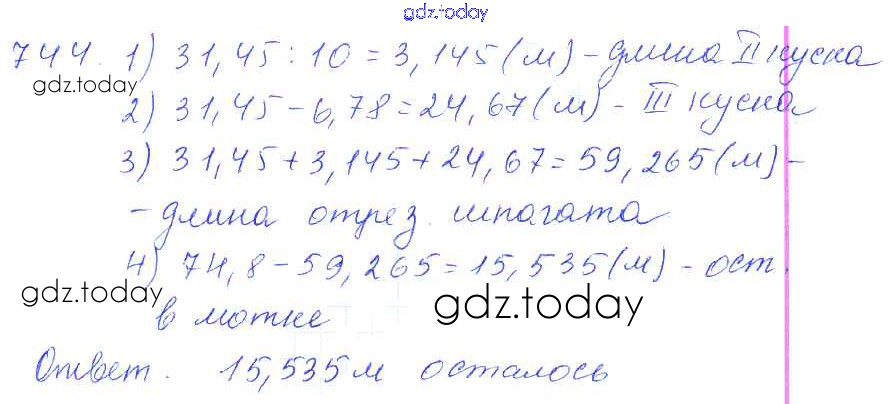 gdz.today
744. 1) 31,45 : 10 = 3,145 (м) - длина II куска
gdz.today
2) 31,45 - 6,78 = 24,67 (м) - III куска
3) 31,45 + 3,145 + 24,67 = 59,265 (м) -
- длина отрез. шпагата
4) 74,8 - 59,265 = 15,535 (м) - ост.
gdz.today
в мотке
gdz.today
Ответ. 15,535 м осталось